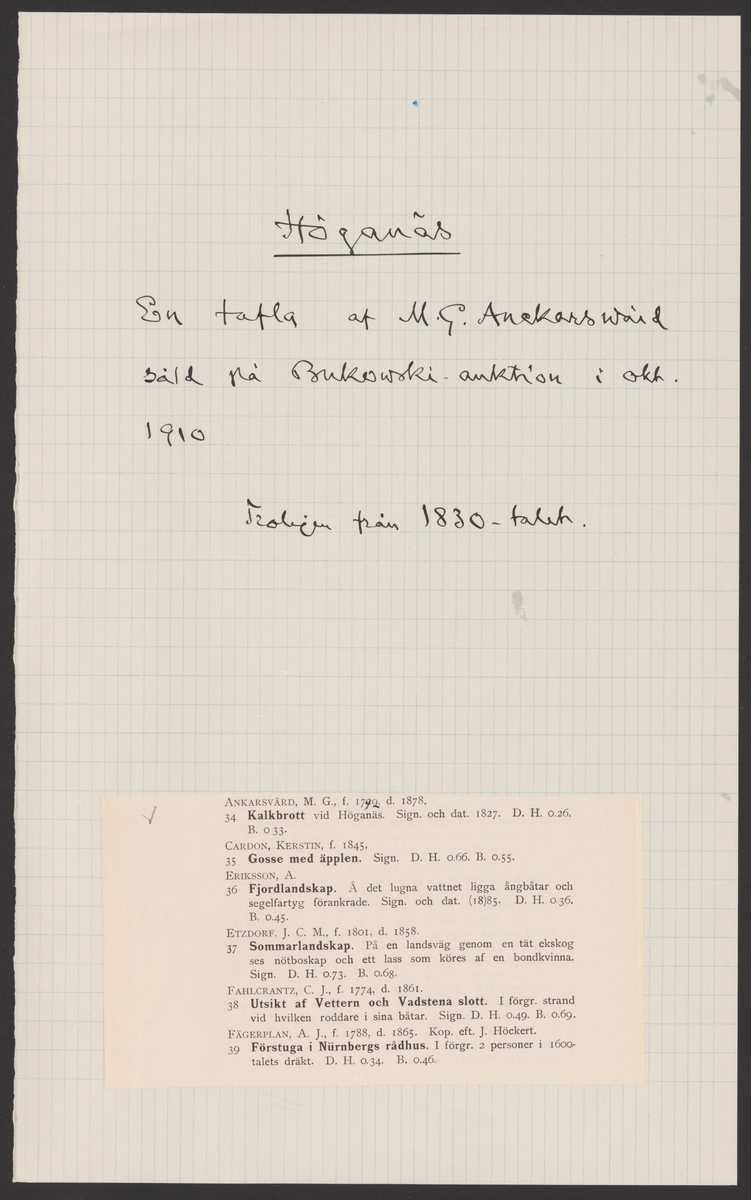 Höganäs
En tafla af M.G. Anckarswärd
såld på Bukowski-auktion i okt.
1910
Troligen från 1830-talet.
ANKARSVÄRD, M. G., f. 1792, d. 1878.
34 Kalkbrott vid Höganäs. Sign. och dat. 1827. D. H. 0.26.
B. 0 33.
CARDON, KERSTIN, f. 1845.
35 Gosse med äpplen. Sign. D. H. 0.66. B. 0.55.
ERIKSSON, A.
36 Fjordlandskap. Å det lugna vattnet ligga ångbåtar och
segelfartyg förankrade. Sign. och dat. (18)85. D. H. 0 36.
B. 0.45.
ETZDORF, J. C. M., f. 1801, d. 1858.
37 Sommarlandskap. På en landsväg genom en tät ekskog
ses nötboskap och ett lass som köres af en bondkvinna.
Sign. D. H. 0.73. B. 0.68.
FAHLCRANTZ, C. J., f. 1774, d. 1861.
38 Utsikt af Vettern och Vadstena slott. I förgr. strand
vid hvilken roddare i sina båtar. Sign. D. H. 0.49. B. 0.69.
FÄGERPLAN, A. J., f. 1788, d. 1865. Kop. eft. J. Höckert.
39 Förstuga i Nürnbergs rådhus. I förgr. 2 personer i 1600-
talets dräkt. D. H. 0.34. B. 0.46.